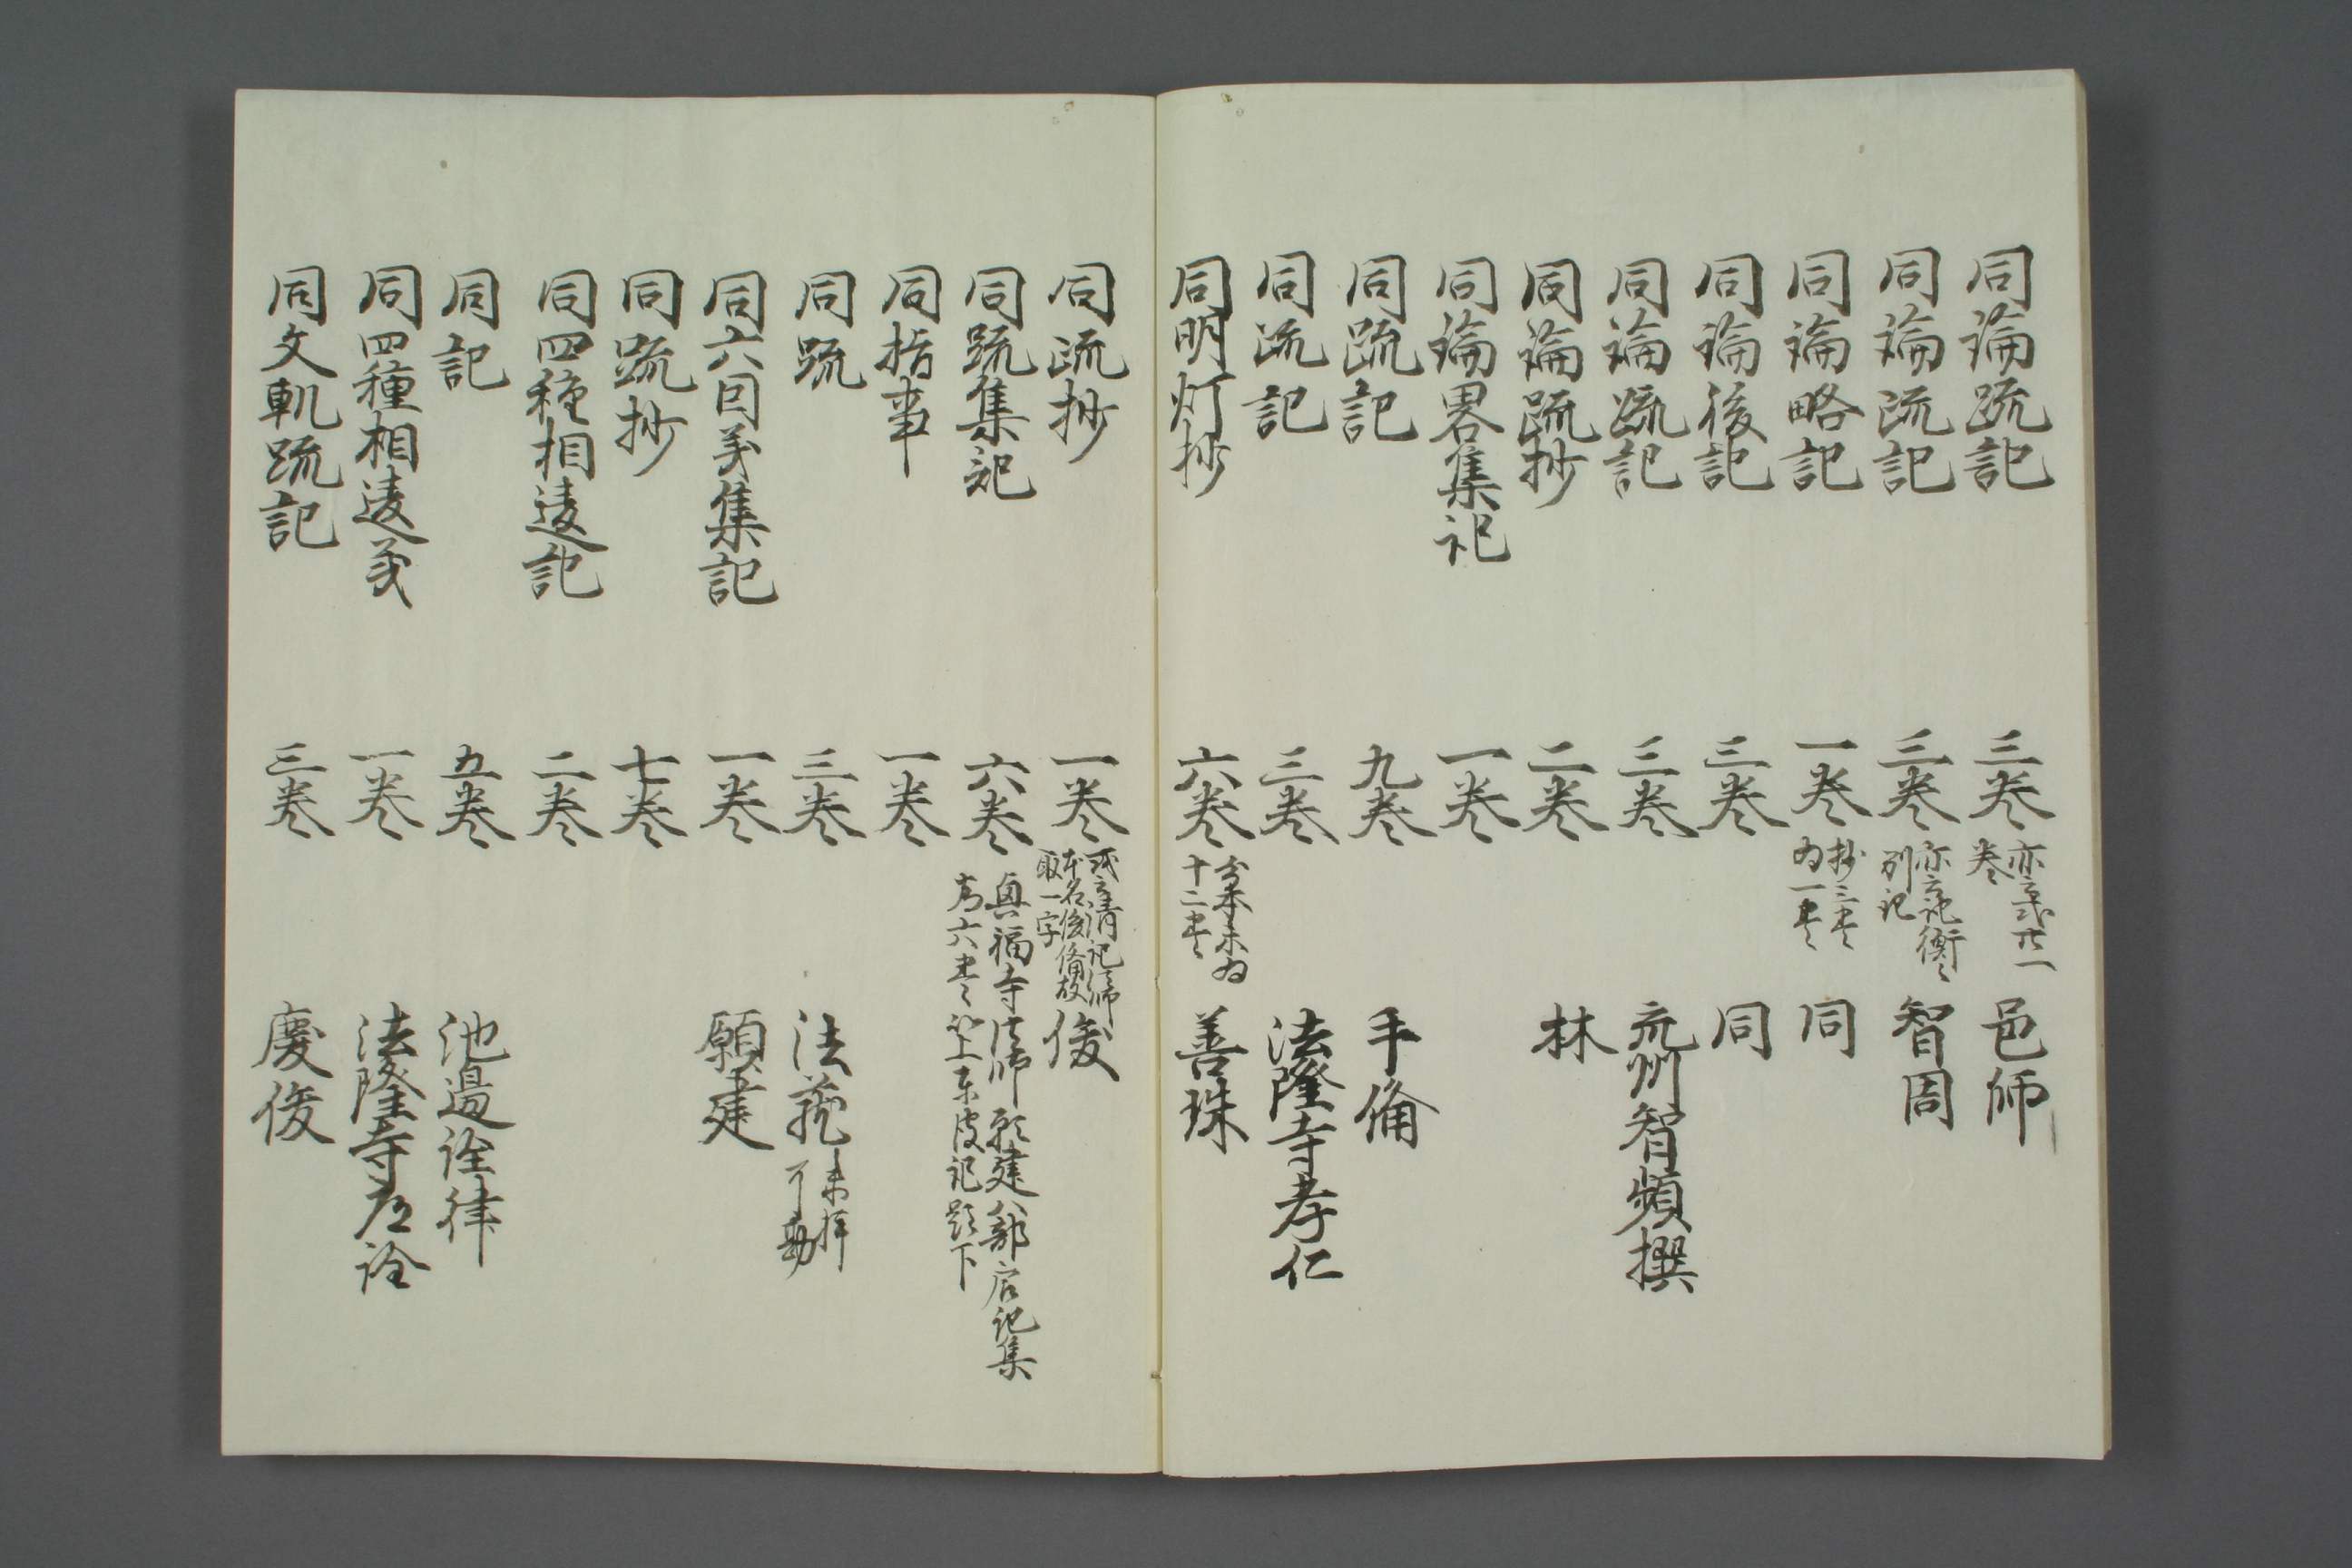 同論疏記 三巻 亦云或廿一巻 邑師
同論疏記 三巻 亦云記衡 別記 智周
同論略記 一巻 抄三巻為一巻 同
同論後記 三巻 同
同論疏記 三巻 智頻撰
同論疏抄 二巻 林
同論畧集記 一巻
同疏記 九巻 手備
同疏記 三巻 法隆寺孝仁
同明灯抄 六巻 本末為十二巻 善珠
同疏抄 一巻 或云清記師 本名俊備故取一字 俊
同疏集記 六巻 真福寺法師願建八部 記集為六巻 上 記題下
同指事 一巻
同疏 三巻 法蔵
同六因義集記 一巻 願建
同疏抄 七巻
同四種相違記 二巻
同記 五巻 池邊詮律
同四種相違義 一巻 法隆寺道詮
同文軌疏記 三巻 慶俊